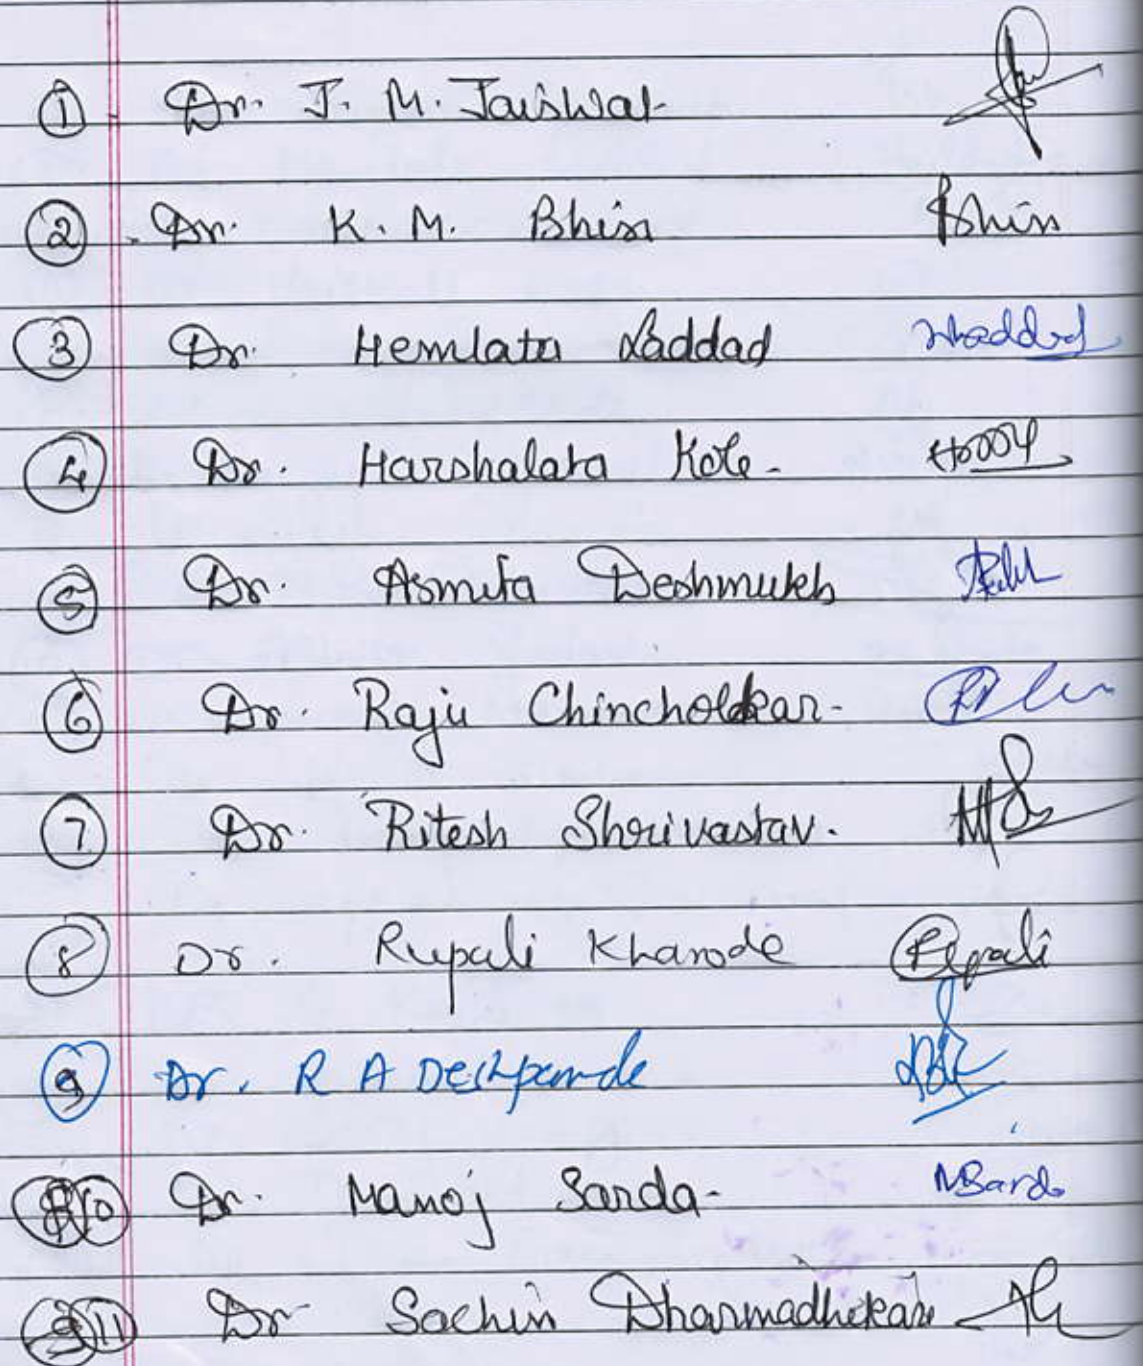 ① Dr. J. M. Jaiswal
② Dr. K. M. Bhise Bhise
③ Dr. Hemlata Laddad HLaddad
④ Dr. Harshalata Kole
⑤ Dr. Asmita Deshmukh
⑥ Dr. Raju Chincholkar
⑦ Dr. Ritesh Shrivastav.
⑧ Dr. Rupali Kharode Rupali
⑨ Dr. R A Deshpande
⑩ Dr. Manoj Sarda MSarda
⑪ Dr Sachin Dharmadhikari